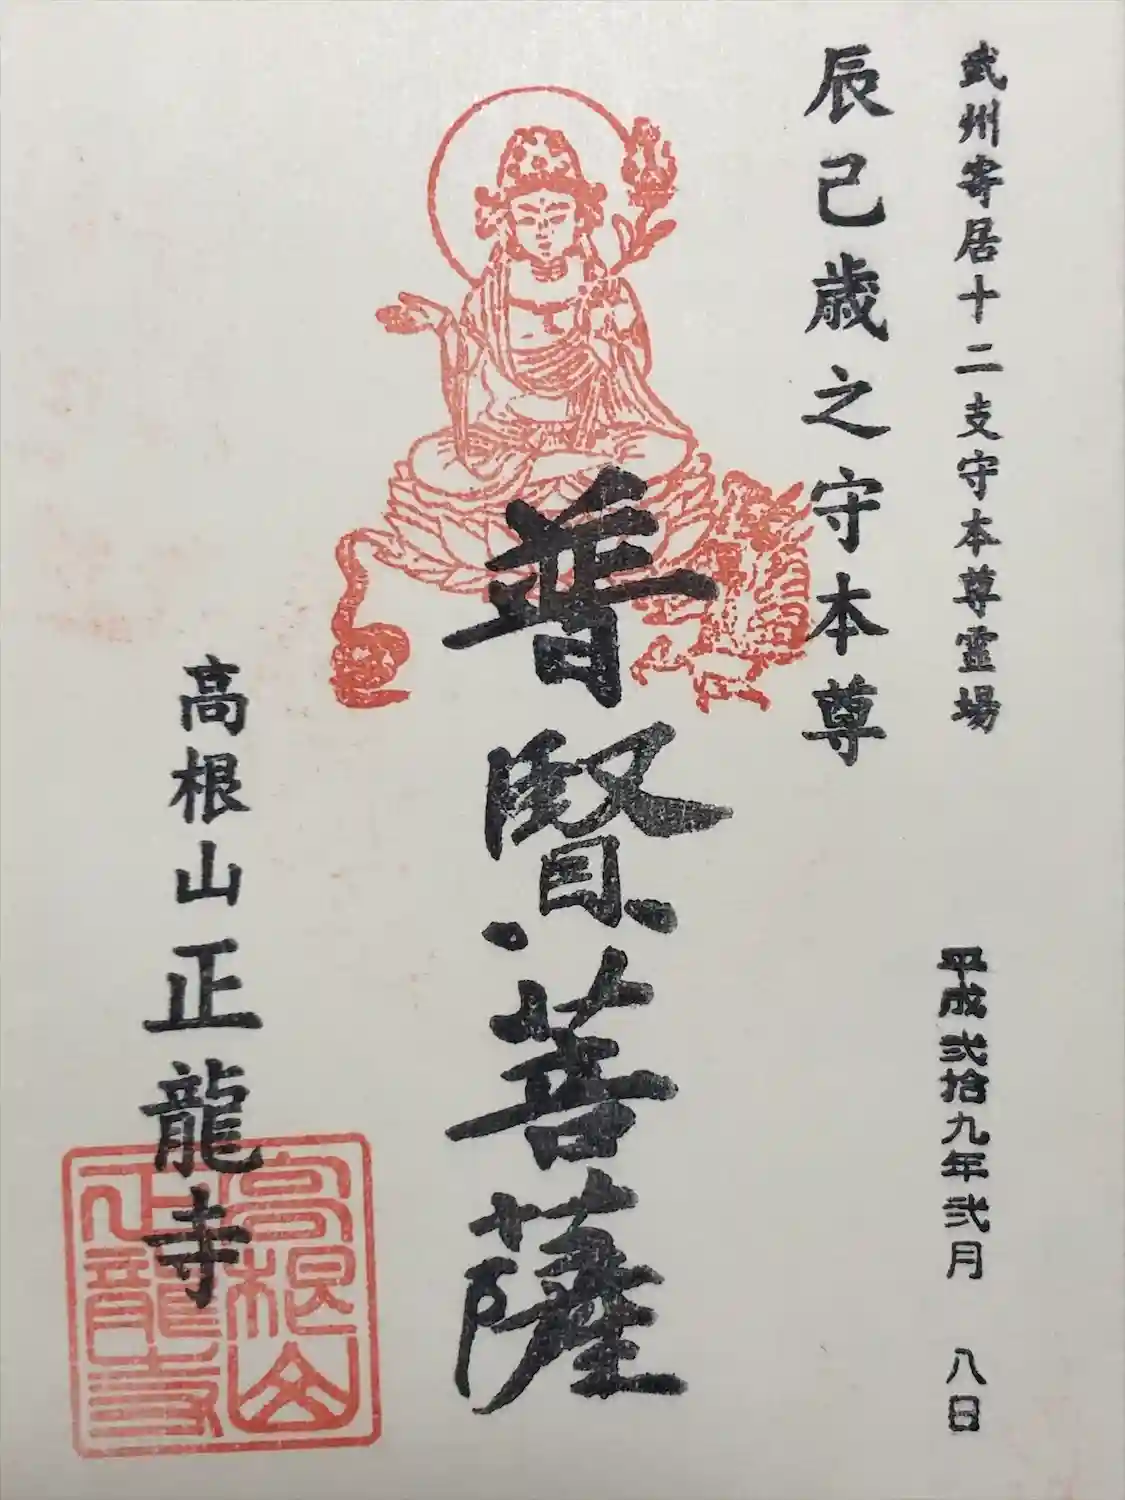 武州寄居十二支守本尊霊場
平成弐拾九年弐月 八日
辰己歳之守本尊
普賢菩薩
高根山正龍寺
高根山
正龍寺